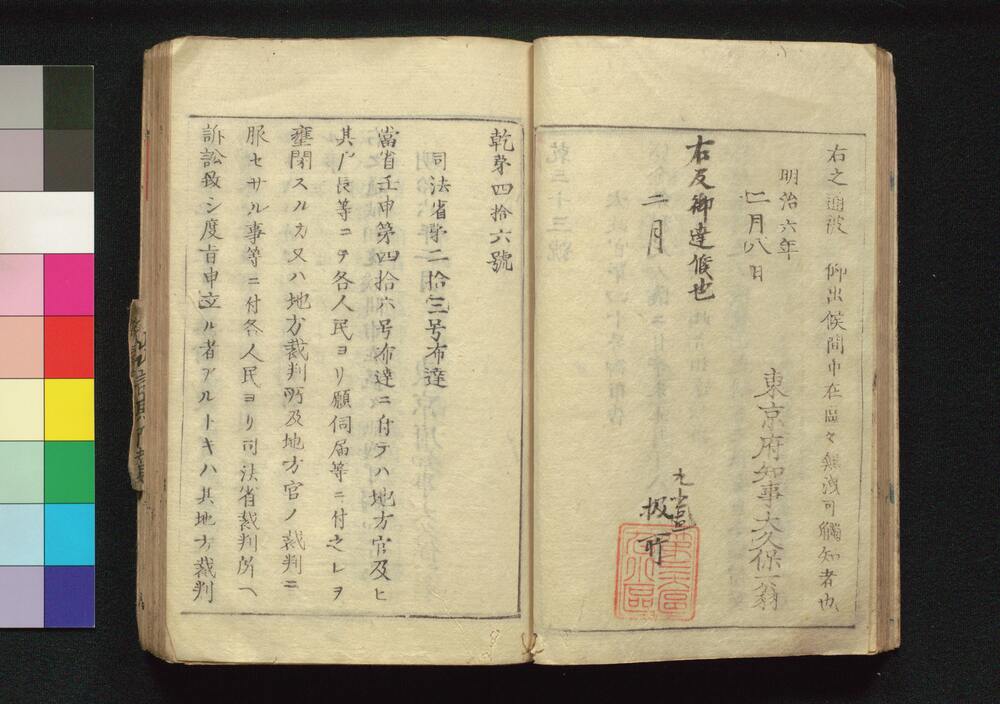 右之通被 仰出候間市在區々無洩可觸知者也
明治六年
二月八日
東京府知事大久保一翁
右及御達候也
二月
扱所
乾第四拾六號
司法省第二拾三号布達
當省壬申第四拾六号布達ニ付テハ地方官及ヒ
其戸長等ニテ各人民ヨリ願伺届等ニ付之レヲ
壅閉スルカ又ハ地方裁判所及地方官ノ裁判ニ
服セサル事等ニ付各人民ヨリ司法省裁判所ヘ
訴訟致シ度旨申立ル者アルトキハ其地方裁判